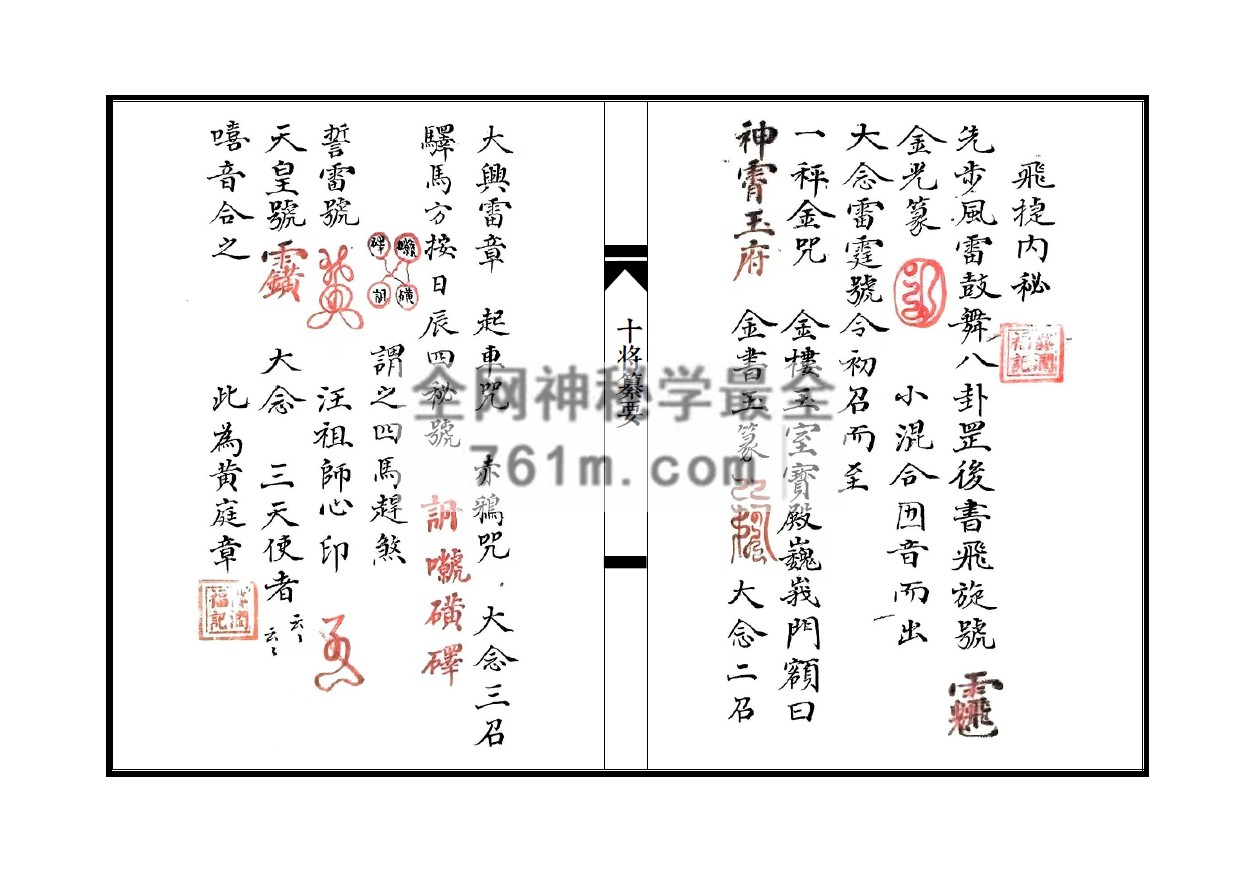 飛捷内秘
先步風雷鼓舞八卦罡後書飛旋號
金光篆 小混合囬音而出
大念雷霆號令初召而至
一秤金咒 金樓玉室寶殿巍峩門額曰
神霄玉府 金書玉篆 大念二召
十将纂要
大興雷章 起車咒 赤鴉咒 大念三召
驛馬方按日辰四秘號
謂之四馬趕煞
誓雷號 汪祖師心印
天皇號 大念 三天使者 云云
嘻音合之 此為黄庭章
全网神秘学最全
761m.com